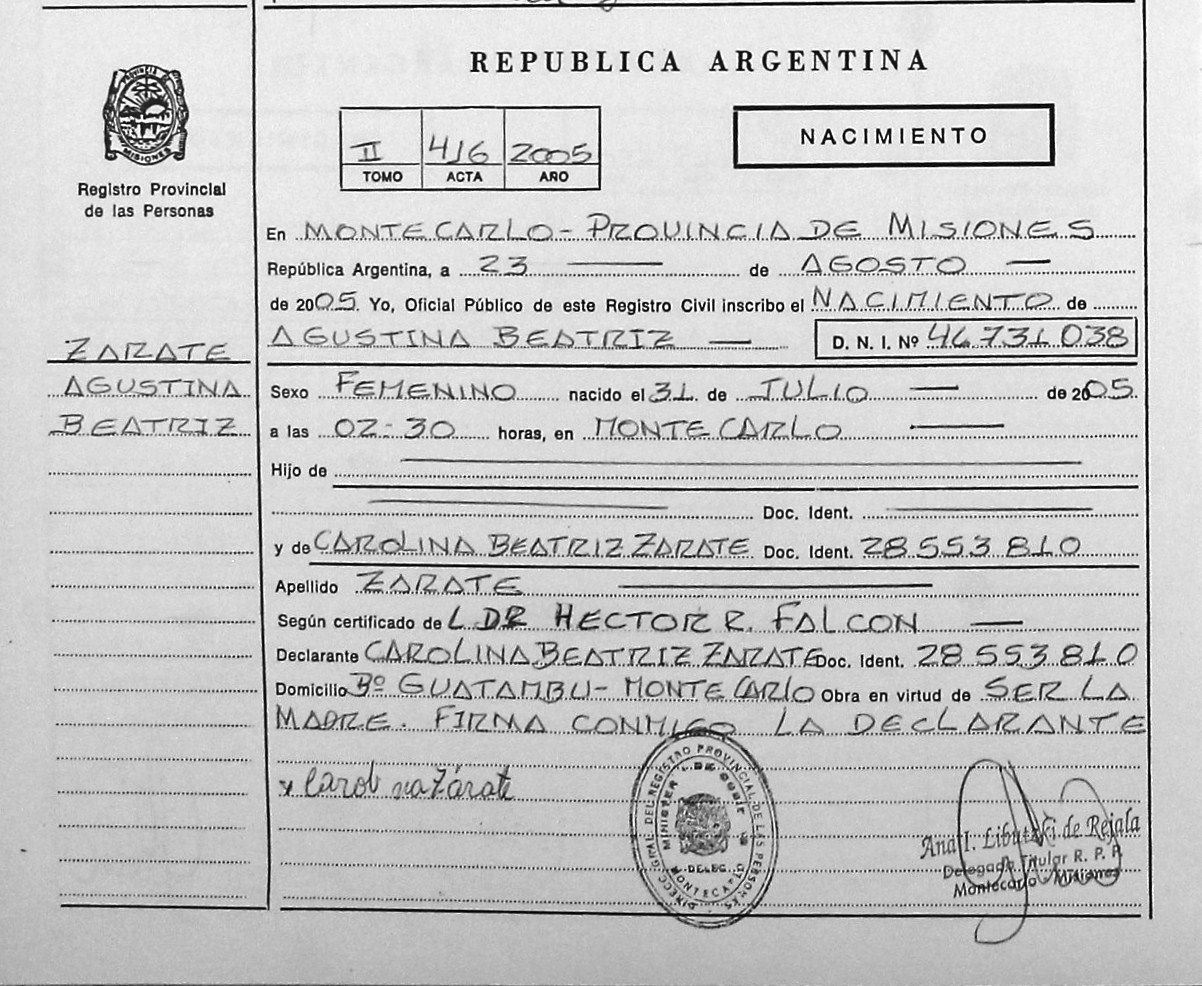 REPUBLICA ARGENTINA
PROVINCIA DE
MISIONES
Registro Provincial
de las Personas
II 416 2005
TOMO ACTA AÑO
NACIMIENTO
En MONTECARLO - PROVINCIA DE MISIONES
República Argentina, a 23 de AGOSTO
de 2005. Yo, Oficial Público de este Registro Civil inscribo el NACIMIENTO de
AGUSTINA BEATRIZ D. N. I. Nº 46.731.038
ZARATE
AGUSTINA
BEATRIZ
Sexo FEMENINO nacido el 31 de JULIO de 2005
a las 02:30 horas, en MONTECARLO
Hijo de
Doc. Ident.
y de CAROLINA BEATRIZ ZARATE Doc. Ident. 28.553.810
Apellido ZARATE
Según certificado de L DR HECTOR R. FALCON
Declarante CAROLINA BEATRIZ ZARATE Doc. Ident. 28.553.810
Domicilio Bº GUATAMBU - MONTECARLO Obra en virtud de SER LA
MADRE. FIRMA CONMIGO LA DECLARANTE
x Carolina Zárate
DIRECC. GRAL. DEL REGISTRO PROVINCIAL DE LAS PERSONAS
DELEG.
MONTECARLO
Ana I. de Rejala
Delegada Titular R. P. P.
Montecarlo - Misiones